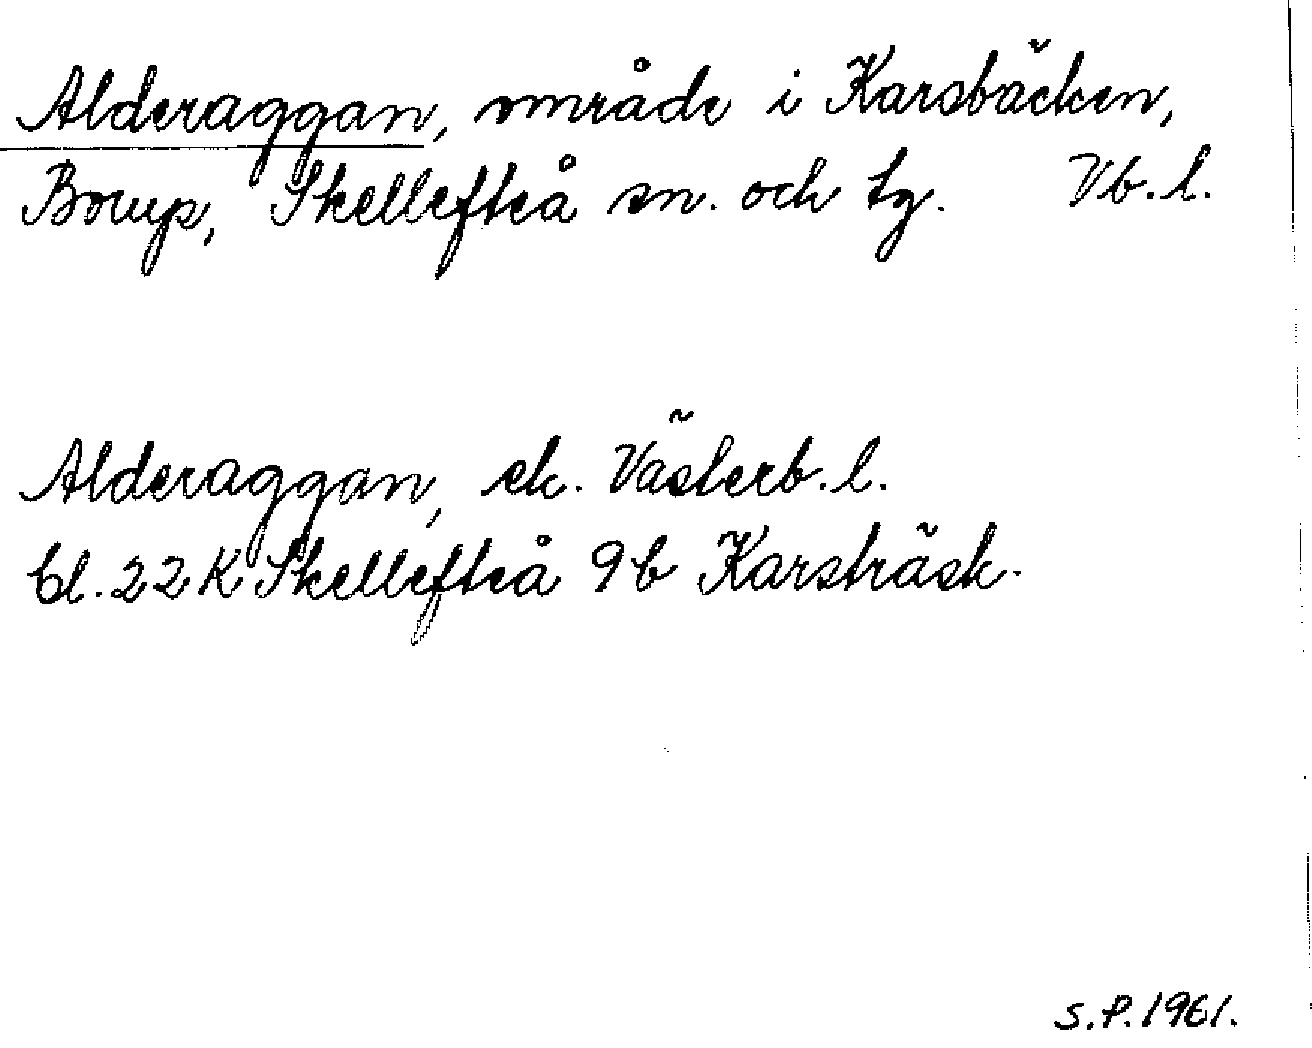 Alderaggan, område i Karsbäcken,
Borup, Skellefteå sn. och tg. Vb. l.
Alderaggan, ek. Västerb. l.
bl. 22 K Skellefteå 9 b Karsträsk.
S.P. 1961.